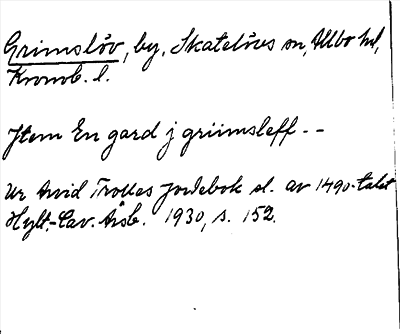 Grimslöv, by, Skatelövs sn, Allbo hd,
Kronob. l.
Jtem En gard j griimsleff --
Ur Arvid Trolles Jordebok sl. av 1490-talet
Hylt.-Cav. Årsb. 1930, s. 152.